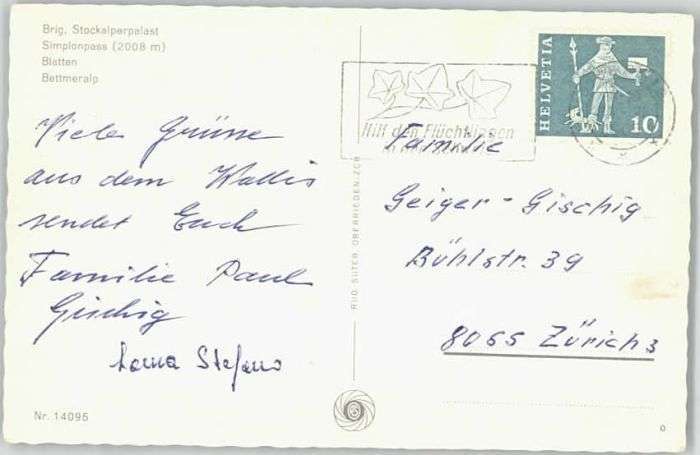 Brig, Stockalperpalast
Simplonpass (2008 m)
Blatten
Bettmeralp
Viele Grüsse
aus dem Wallis
sendet Euch
Familie Paul
Gischig
Stefano
Nr. 14095
RUD. SUTER, OBERRIEDEN-ZCH
HELVETIA
10
Hilf den Flüchtlingen
Familie
Geiger-Gischig
Bühlstr. 39
8055 Zürich 3